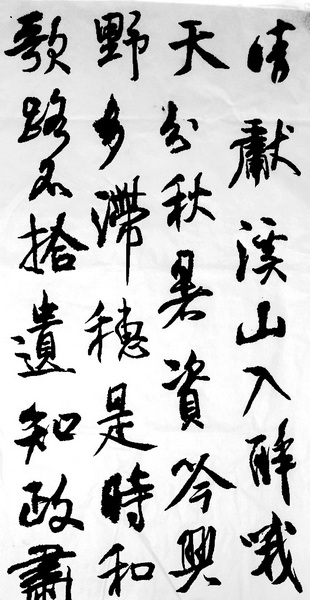 晴獻溪山入醉哦
天分秋暑資吟興
野多滯穗是時和
歌路不拾遺知政肅